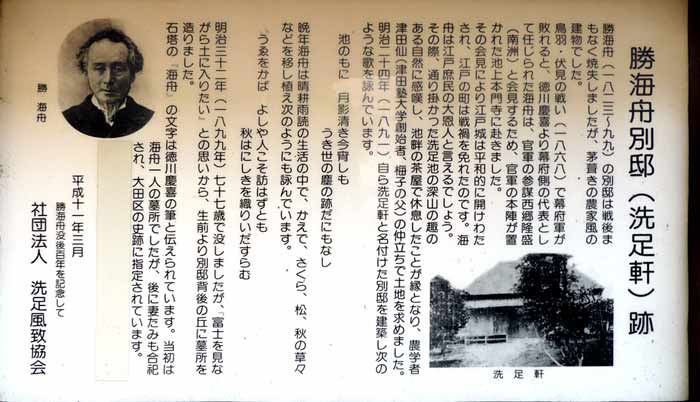 勝海舟別邸（洗足軒）跡
勝海舟（一八二三〜九九）の別邸は戦後ま
もなく焼失しましたが、茅葺きの農家風の
建物でした。
鳥羽・伏見の戦い（一八六八）で幕府軍が
敗れると、徳川慶喜より幕府側の代表とし
て任じられた海舟は、官軍の参謀西郷隆盛
（南洲）と会見するため、官軍の本陣が置
かれた池上本門寺に赴きました。
その会見により江戸城は平和的に開けわた
され、江戸の町は戦禍を免れたのです。海
舟は江戸庶民の大恩人と言えるでしょう。
その際、通り掛かった洗足池の深山の趣の
ある自然に感嘆し、池畔の茶屋で休息したことが縁となり、農学者
津田仙（津田塾大学創始者、梅子の父）の仲立ちで土地を求めました。
明治二十四年（一八九一）自ら洗足軒と名付けた別邸を建築し次の
ような歌を詠んでいます。
池のもに　月影清き今宵しも
うき世の塵の跡だにもなし
晩年海舟は晴耕雨読の生活の中で、かえで、さくら、松、秋の草々
などを移し植え次のようにも詠んでいます。
うゑをかば　よしや人こそ訪はずとも
秋はにしきを織りいだすらむ
明治三十二年（一八九九年）七十七歳で没しましたが、「富士を見な
がら土に入りたい」との思いから、生前より別邸背後の丘に墓所を
造りました。
石塔の『海舟』の文字は徳川慶喜の筆と伝えられています。当初は
海舟一人の墓所でしたが、後に妻たみも合祀
され、大田区の史跡に指定されています。
平成十一年三月
勝海舟没後百年を記念して
社団法人　洗足風致協会
洗足軒
勝　海舟